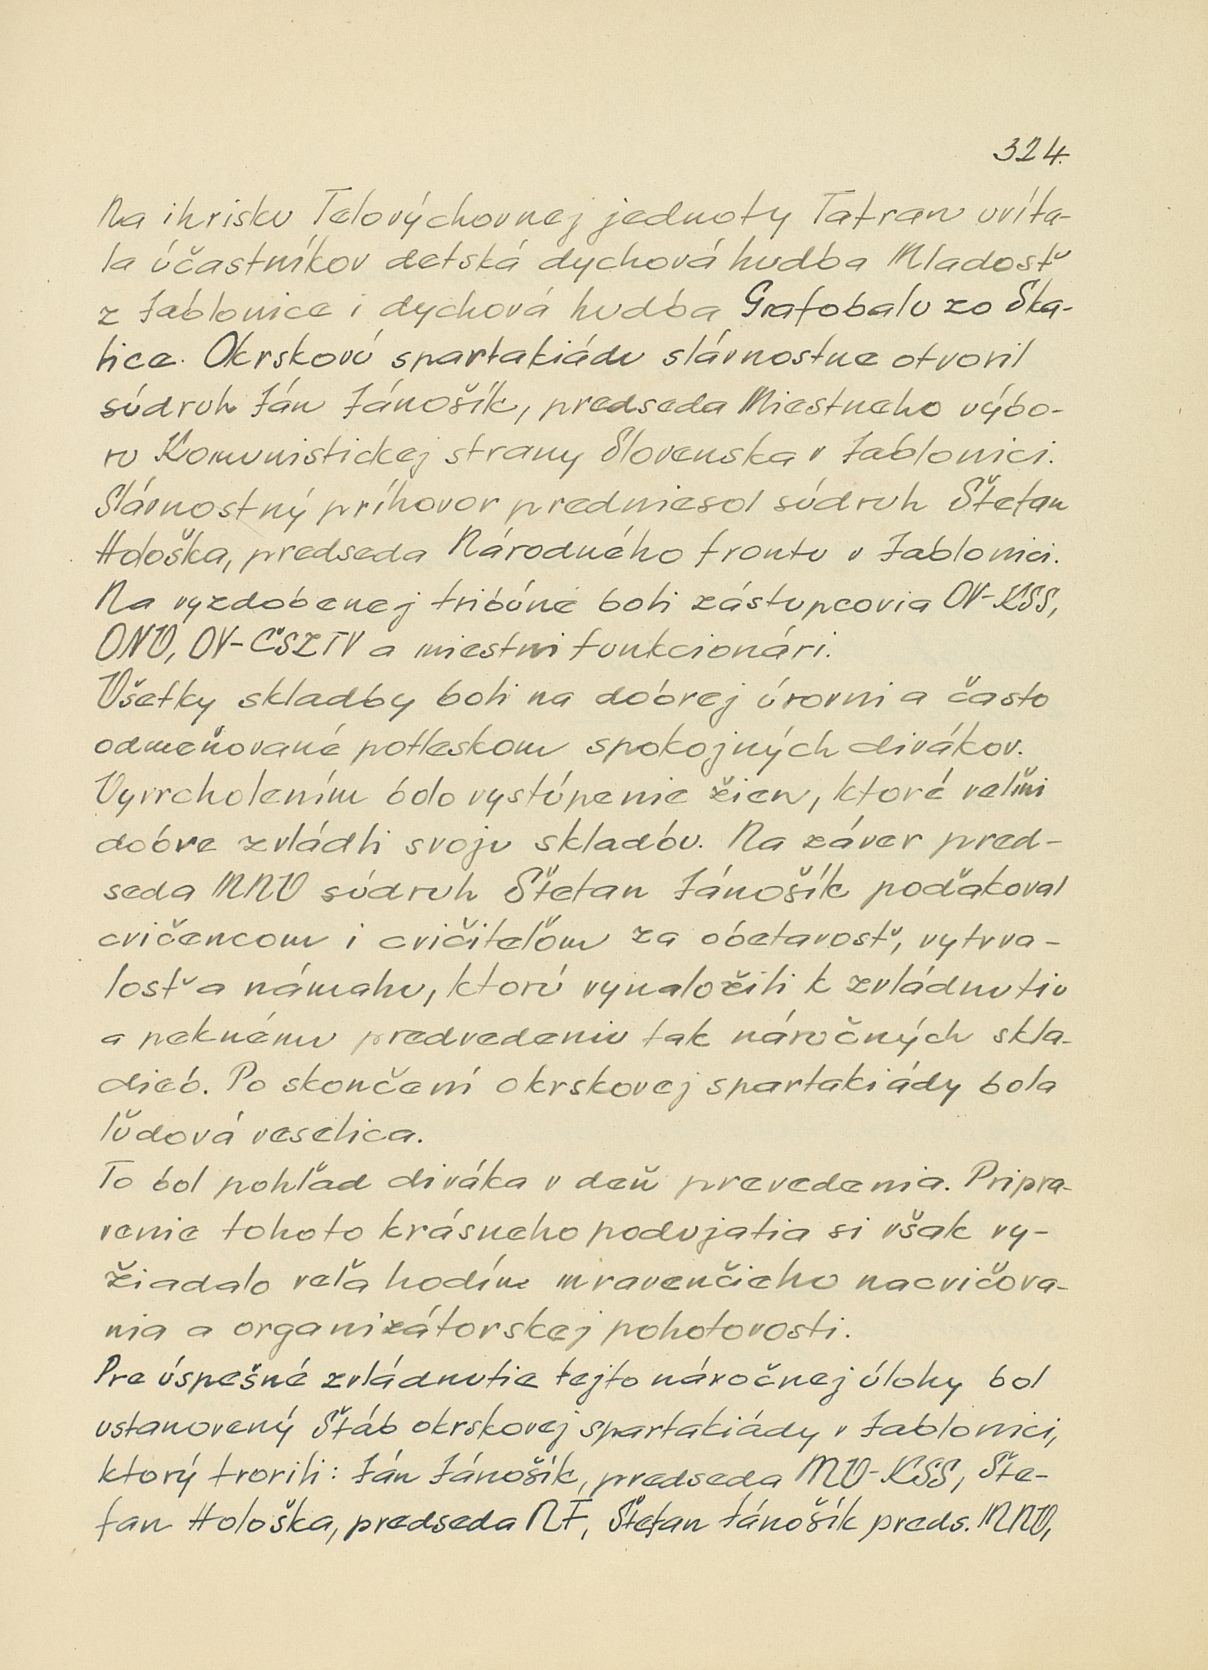 324.
Na ihrisku Telovýchovnej jednoty Tatran uvíta-
la účastníkov detská dychová hudba Mladosť
z Jablonice i dychová hudba Grafobalu zo Ska-
lice. Okrskovú spartakiádu slávnostne otvoril
súdruh Ján Jánošík, predseda Miestneho výbo-
ru Komunistickej strany Slovenska v Jablonici.
Slávnostný príhovor predniesol súdruh Štefan
Hološka, predseda Národného frontu v Jablonici.
Na vyzdobenej tribúne boli zástupcovia OV-KSS,
ONV, OV-ČSZTV a miestni funkcionári.
Všetky skladby boli na dobrej úrovni a často
odmeňované potleskom spokojných divákov.
Vyvrcholením bolo vystúpenie žien, ktoré veľmi
dobre zvládli svoju skladbu. Na záver pred-
seda MNV súdruh Štefan Jánošík poďakoval
cvičencom i cvičiteľom za obetavosť, vytrva-
losť a námahu, ktorú vynaložili k zvládnutiu
a peknému predvedeniu tak náročných skla-
dieb. Po skončení okrskovej spartakiády bola
ľudová veselica.
To bol pohľad diváka v deň prevedenia. Pripra-
venie tohoto krásneho podujatia si však vy-
žiadalo veľa hodín mravenčieho nacvičova-
nia a organizátorskej pohotovosti.
Pre úspešné zvládnutie tejto náročnej úlohy bol
ustanovený Štáb okrskovej spartakiády v Jablonici,
ktorý tvorili: Ján Jánošík, predseda MV-KSS, Šte-
fan Hološka, predseda NF, Štefan Jánošík preds. MNV,